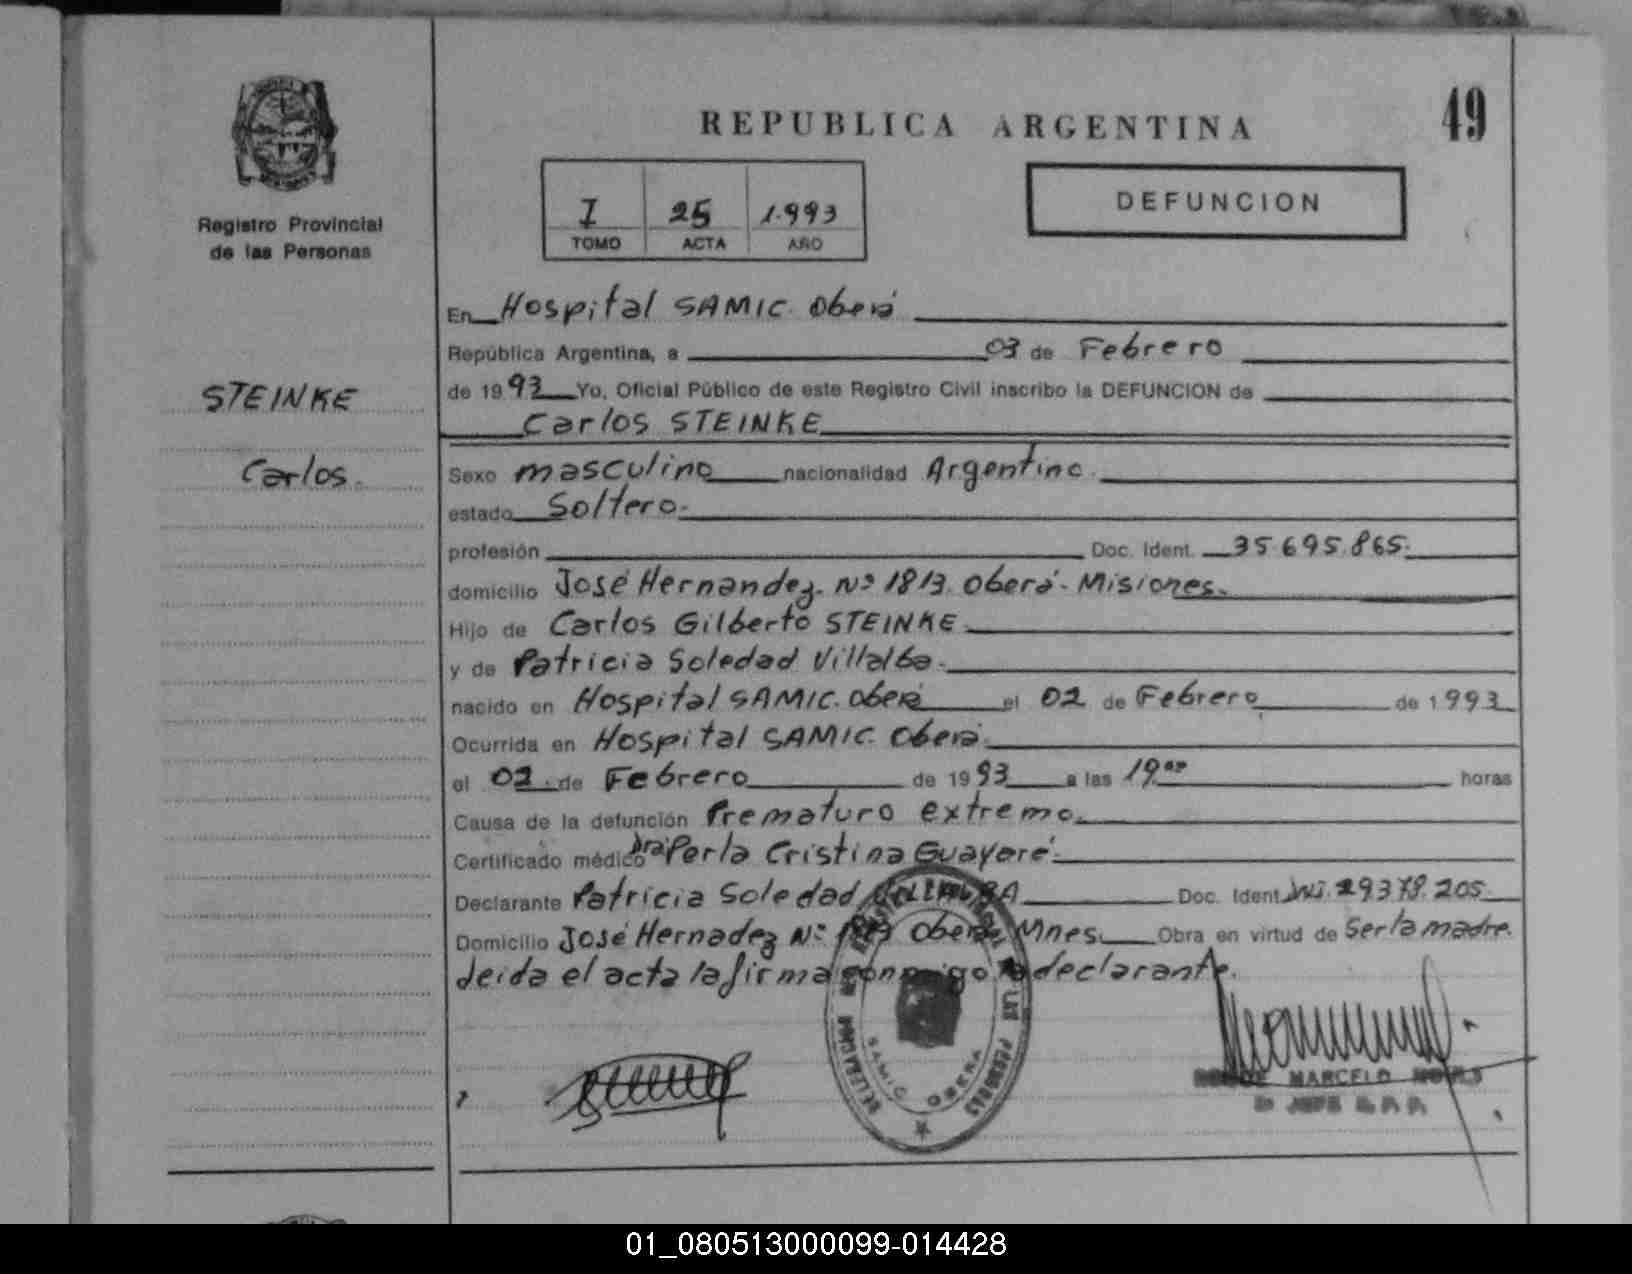 REPUBLICA ARGENTINA
49
Registro Provincial
de las Personas
I 25 1.993
TOMO ACTA AÑO
DEFUNCION
STEINKE
Carlos.
En Hospital SAMIC. Oberá
República Argentina, a 03 de Febrero
de 1993 Yo, Oficial Público de este Registro Civil inscribo la DEFUNCION de
Carlos STEINKE
Sexo masculino nacionalidad Argentino.
estado Soltero.
profesión Doc. Ident. 35.695.865.
domicilio José Hernandez. Nº 1813. Oberá - Misiones.
Hijo de Carlos Gilberto STEINKE.
y de Patricia Soledad Villalba.
nacido en Hospital SAMIC. Oberá el 02 de Febrero de 1993
Ocurrida en Hospital SAMIC. Oberá.
el 02. de Febrero de 1993 a las 19ºº horas
Causa de la defunción Prematuro extremo.
Certificado médico Dra Perla Cristina Guayaré.
Declarante Patricia Soledad VILLALBA Doc. Ident. 29378.205.
Domicilio José Hernadez Nº 1813 Oberá Mnes. Obra en virtud de Ser la madre.
leida el acta la firma conmigo la declarante.
DELEGACION DEL REGISTRO PROV. DE LAS PERSONAS
SAMIC OBERA
MARCELO
01_080513000099-014428